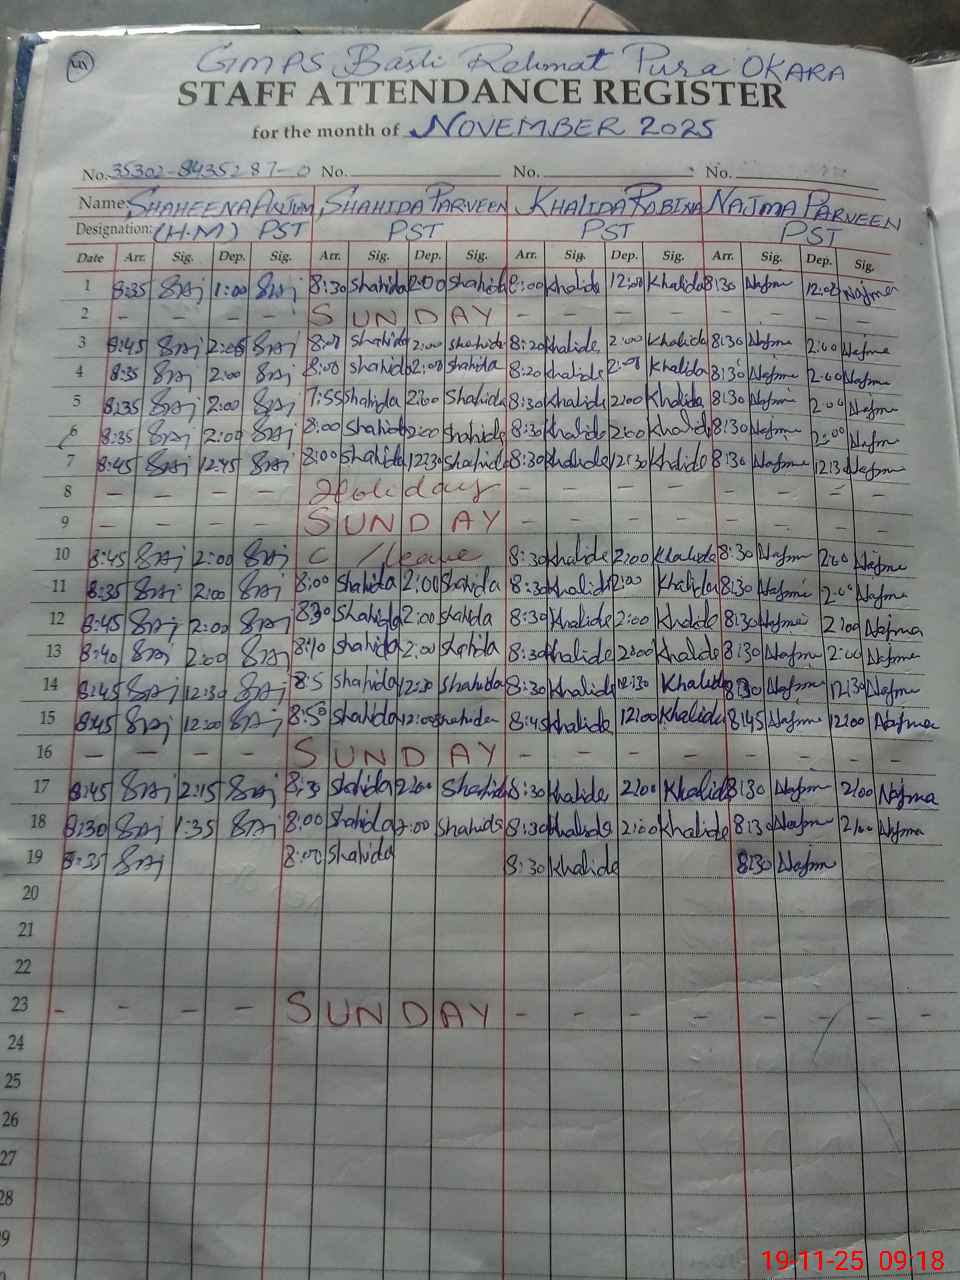 GMPS Basti Rehmat Pura OKARA
STAFF ATTENDANCE REGISTER
for the month of NOVEMBER 2025
No. 35302-8435287-0 No. No. No.
Name: SHAHEENA ANJUM SHAHIDA PARVEEN KHALIDA RUBINA NAJMA PARVEEN
Designation: (H.M) PST PST PST PST
Date Arr. Sig. Dep. Sig. Arr. Sig. Dep. Sig. Arr. Sig. Dep. Sig. Arr. Sig. Dep. Sig.
1 8:35 1:00 8:30 Shahida 2:00 Shahida 8:00 Khalida 12:00 Khalida 8:30 Najma Najma
2 - - - - SUNDAY - - - - - - - -
3 8:45 Shahida 2:00 Shahida 8:20 Khalida 2:00 Khalida 8:30 Najma 2:00 Najma
4 8:35 2:00 8:00 Shahida 2:00 Shahida 8:20 Khalida Khalida 8:30 Najma 2:00 Najma
5 8:35 2:00 7:55 Shahida 2:00 Shahida 8:30 Khalida 2:00 Khalida 8:30 Najma 2:00 Najma
6 8:35 2:00 8:00 Shahida 2:00 Shahida 8:30 Khalida 2:00 Khalida 8:30 Najma 2:00 Najma
7 8:45 12:45 8:00 Shahida 12:30 Shahida 8:30 Khalida 12:30 Khalida 8:30 Najma 12:30 Najma
8 - - - - Holiday - - - - - - - -
9 - - - - SUNDAY - - - - - - - -
10 8:45 2:00 C/leave 8:30 Khalida 2:00 Khalida 8:30 Najma 2:00 Najma
11 8:35 2:00 8:00 Shahida 2:00 Shahida 8:30 Khalida 2:00 Khalida 8:30 Najma 2:00 Najma
12 8:45 2:00 8:30 Shahida 2:00 Shahida 8:30 Khalida 2:00 Khalida 8:30 Najma 2:00 Najma
13 8:40 2:00 8:10 Shahida 2:00 Shahida 8:30 Khalida 2:00 Khalida 8:30 Najma 2:00 Najma
14 8:45 12:30 8:5 Shahida 12:30 Shahida 8:30 Khalida 12:30 Khalida 8:30 Najma 12:30 Najma
15 8:45 12:00 8:50 Shahida 12:00 Shahida 8:45 Khalida 12:00 Khalida 8:45 Najma 12:00 Najma
16 - - - - SUNDAY - - - - - - - -
17 8:45 2:15 8:30 Shahida 2:00 Shahida 8:30 Khalida 2:00 Khalida 8:30 Najma 2:00 Najma
18 8:30 1:35 8:00 Shahida 2:00 Shahida 8:30 Khalida 2:00 Khalida 8:30 Najma 2:00 Najma
19 8:35 8:00 Shahida 8:30 Khalida 8:30 Najma
20
21
22
23 - - - - SUNDAY - - - - - - - -
24
25
26
27
28
19-11-25 09:18